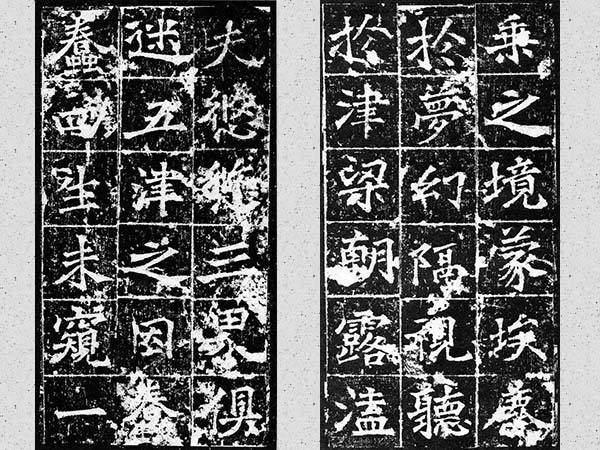 夫三界俱
迷五津之因蠢
蠢四生未窺一
乘之境蒙埃塵
於夢幻隔視聽
於津梁朝露溘